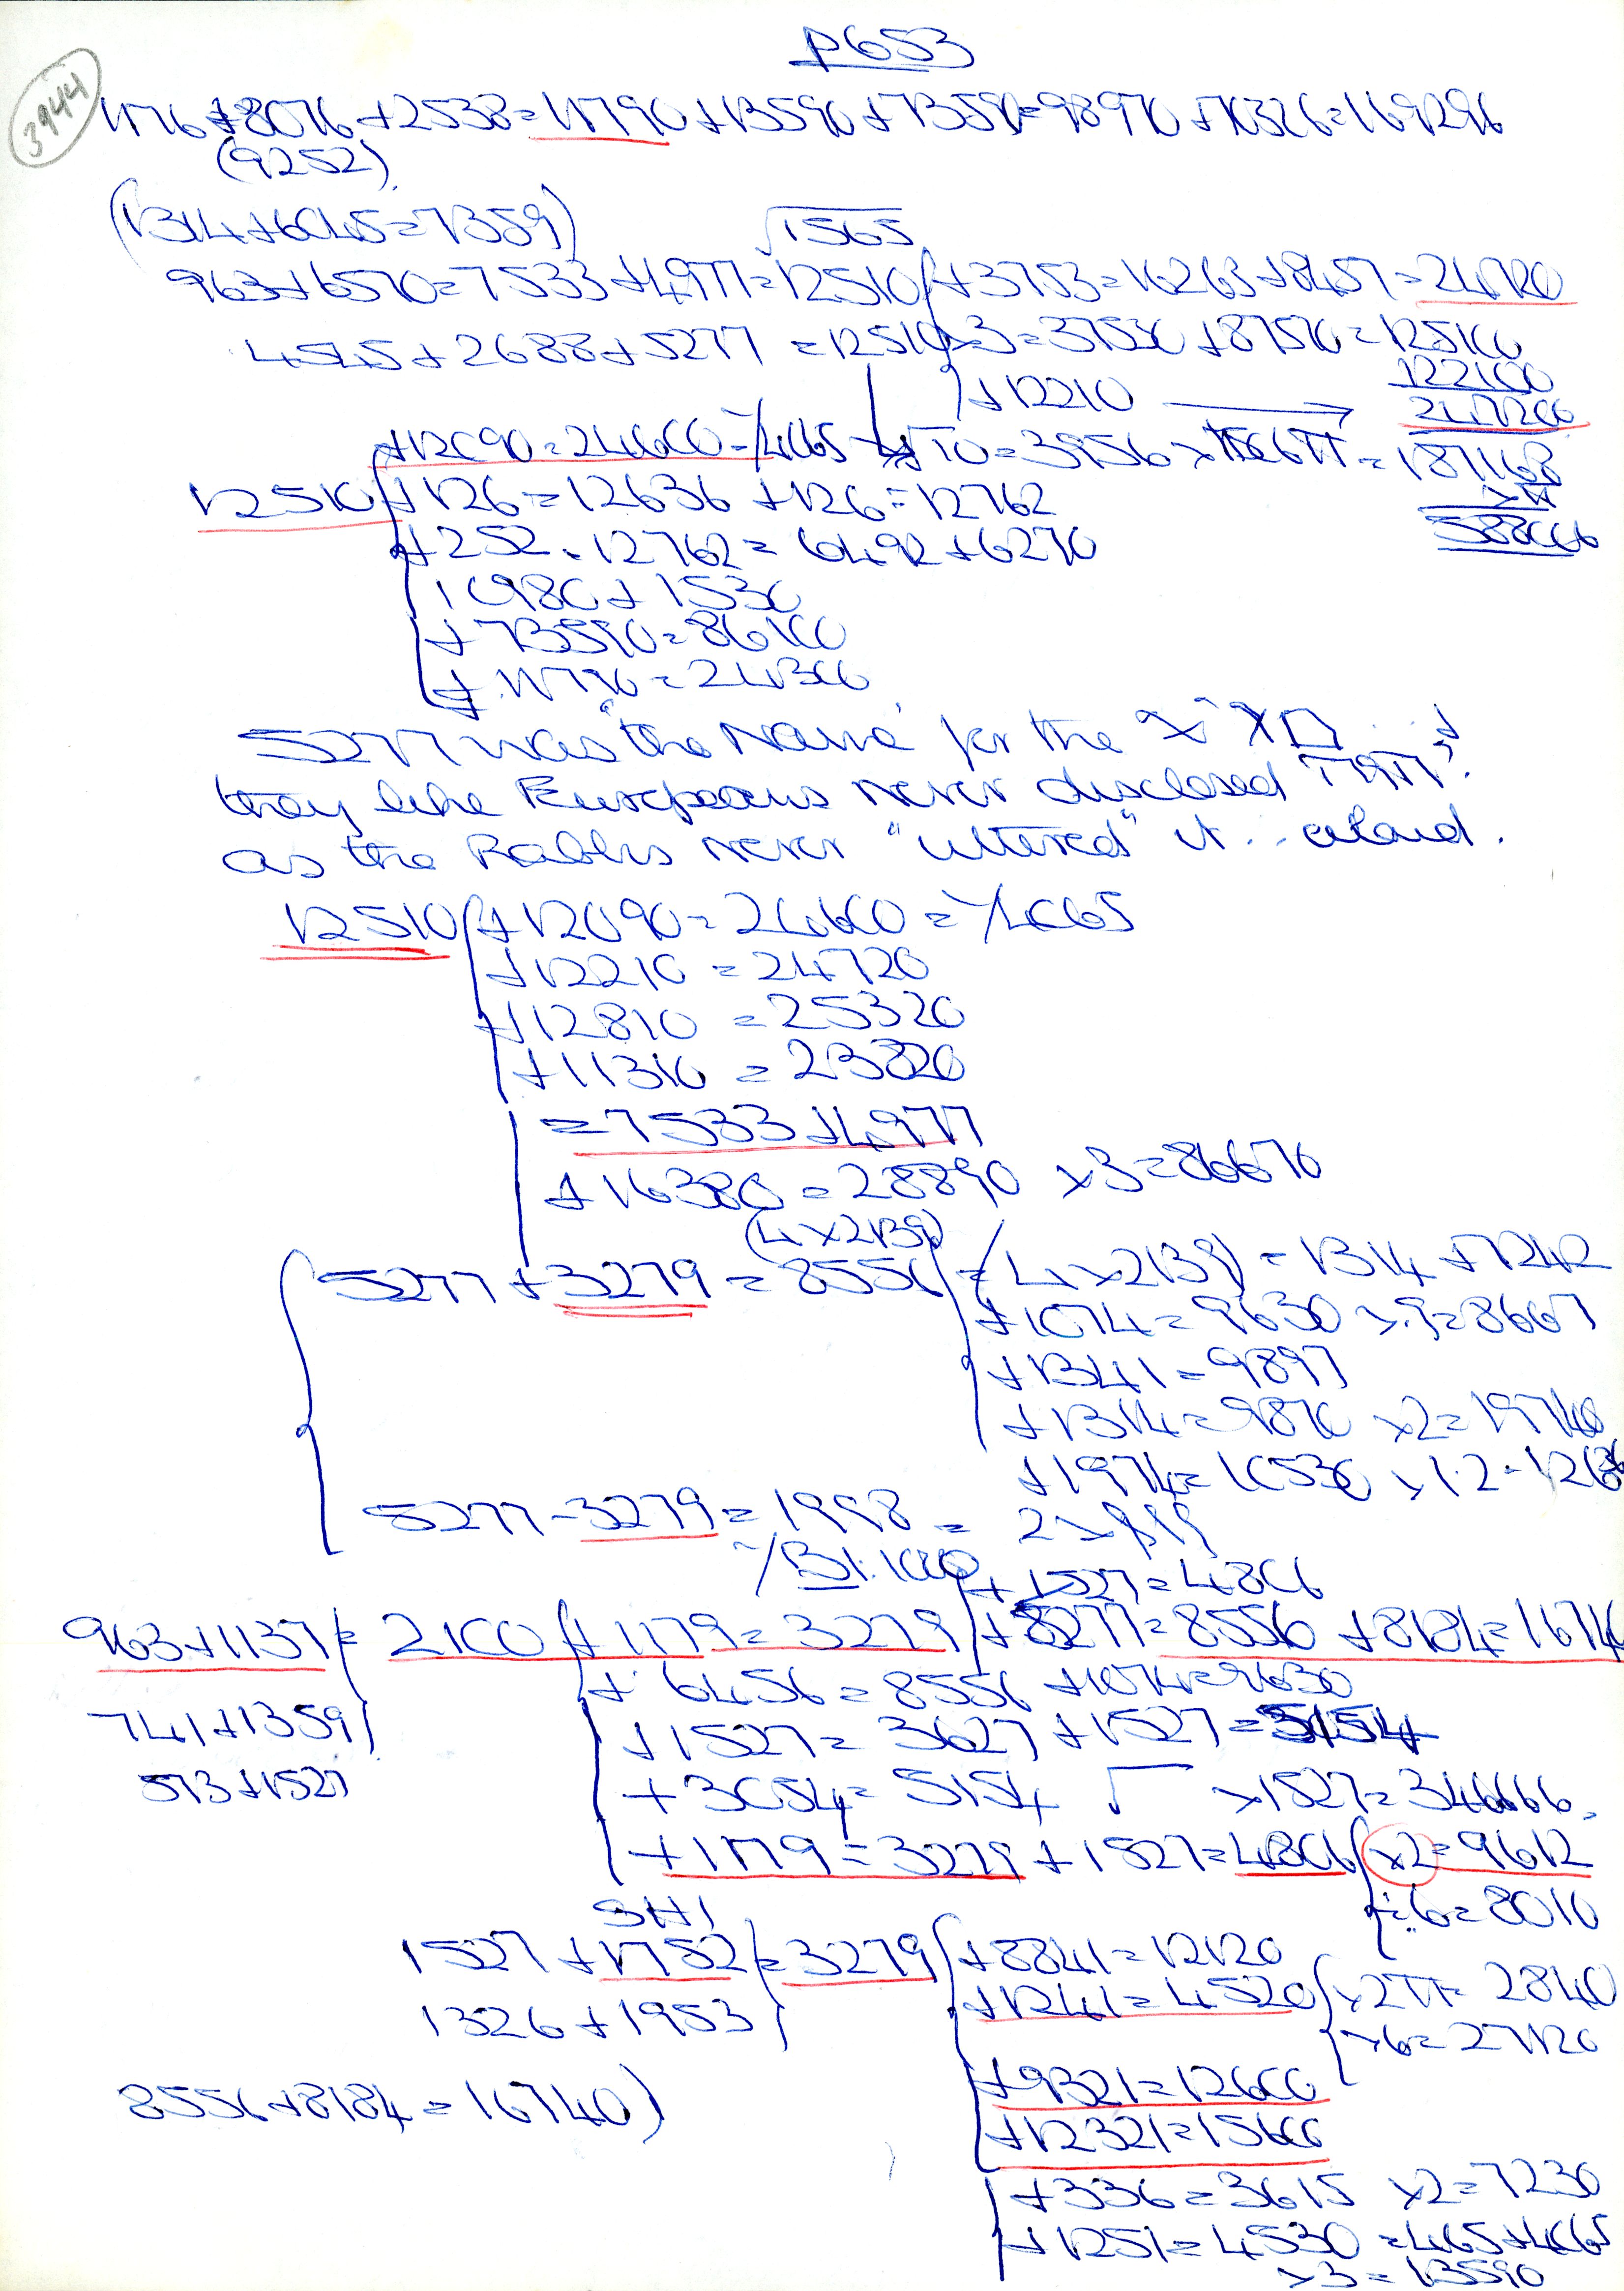 P653
3944
1176+8076+2538=11790+13590+73590=98970+70326=169296
(9252)
(1314+6045=7359)
√1565
963+6570=7533+4977=12510 +3753=16263+8457=24720
4545+2688+5277=12510 ×3=37530+87570=125100
+12210 → 122100
247200
+12090=24600=1/4065 √10=3956
187168
588000
12510 +126=12636+126=12762
+252=12762=6492+6270
10980+1530
+73590=86100
+11790=24300
5277 was "the Name" for the
they like Europeans never disclosed
as the Rabbis never "uttered" it... aloud.
12510 +12090=24600=1/4065
+12210=24720
+12810=25320
+11310=23820
=7533+4977
+16380=28890 ×3=86670
(4×2139)
5277+3279=8556 =(4×2139)=1314+7242
+1074=9630 ×.9=8667
+1341=9897
+1314=9870 ×2=19740
+1974=10530 ×1.2=12636
5277-3279=1998=2×999
+1527=4806
963+1137=2100 +1179=3279 +5277=8556+8184=16740
+6456=8556+1074=9630
741+1359
+1527=3627+1527=5154
573+1527
+3054=5154 √ ×1527=346666
+1179=3279+1527=4806 ×2=9612
÷.6=8010
1527+1752=3279 +8841=12120
+1241=4520 ×2π=2840
1326+1953
×6=27120
+9321=12600
8556+8184=16740)
+12321=15600
+336=3615 ×2=7230
+1251=4530=465+4065
×3=13590